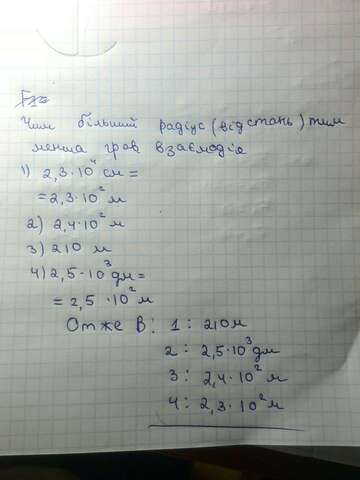 Чим більший радіус (відстань) тим
менша грав взаємодія
1) 2,3·10⁴ см =
= 2,3·10² м
2) 2,4·10² м
3) 210 м
4) 2,5·10³ дм =
= 2,5 ·10² м
Отже В: 1: 210м
2: 2,5·10³ дм
3: 2,4·10² м
4: 2,3·10² м